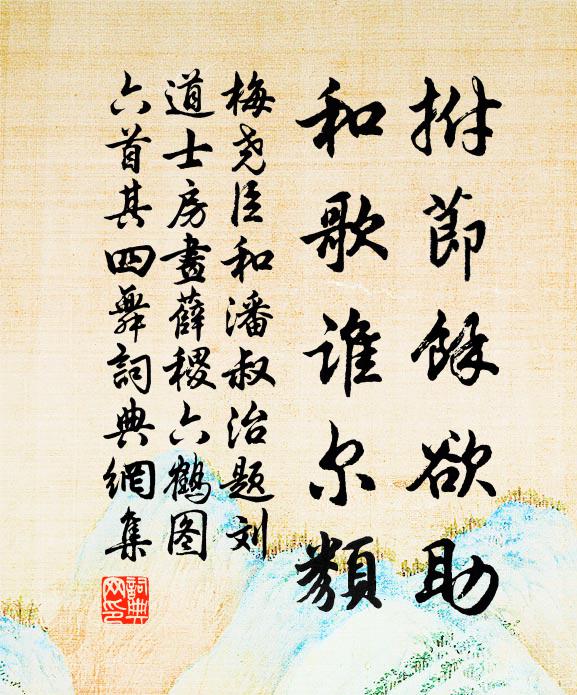 拊節餘欲助
和歌誰尔類
梅尧臣和潘叔治题刘
道士房畫薛稷六鹤图
六首其四舞詞典網集
詞典
网印